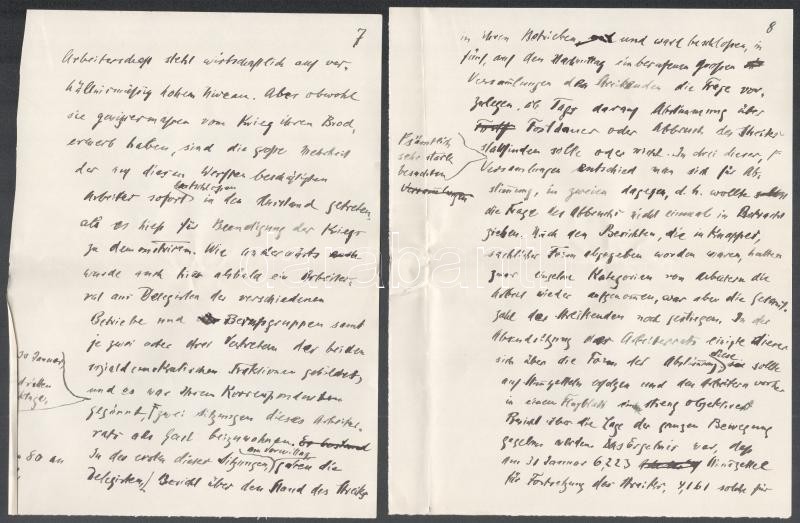 7
Arbeiterschaft steht wirtschaftlich auf ver-
hältnismäßig hohem Niveau. Aber obwohl
sie gewissermassen vom Krieg ihren Brod-
erwerb haben, sind die große Mehrheit
der auf diesen Werften beschäftigten
Arbeiter sofort entschlossen in den Ausstand getreten,
als es hieß für Beendigung des Kriegs
zu demonstriren. Wie anderwärts
wurde auch hier alsbald ein Arbeiter-
rat aus Delegirten der verschiedenen
Betriebe und Berufsgruppen samt
je zwei oder drei Vertretern der beiden
sozialdemokratischen Fraktionen gebildet,
und es war Ihrem Korrespondenten
gegönnt, zwei Sitzungen dieses Arbeiter-
rats als Gast beizuwohnen.
In der ersten dieser Sitzungen, am Vormittag gaben die
Delegirten Bericht über den Stand des Streiks
30 Januar,
80 an
8
in ihren Betrieben, und ward beschlossen, in
fünf, auf den Nachmittag einberufenen großen
Versamlungen der Streikenden die Frage vor-
zulegen, ob Tags darauf Abstimmung über
Fortdauer oder Abbruch des Streiks
stattfinden solle oder nicht. In drei dieser,
Versamlungen entschied man sich für Ab-
stimmung, in zweien dagegen, d.h. wollte
die Frage des Abbruchs nicht einmal in Betracht
ziehen. Nach den Berichten, die in knapper,
sachlicher Form abgegeben worden waren, hatten
zwar einzelne Kategorien von Arbeitern die
Arbeit wieder aufgenommen, war aber die Gesamt-
zahl der Streikenden noch gestiegen. In der
Abendsitzung des Arbeiterrats einigte dieser
sich über die Form der Abstimmung, diese sollte
auf Stimmzetteln erfolgen und den Arbeitern vorher
in einem Flugblatt streng objektiver
Bericht über die Lage der ganzen Bewegung
gegeben werden. Das Ergebnis war, daß
am 31 Januar 6,223 Stimmzettel
für Fortsetzung des Streiks, 4,161 solche für
sämtlich
sehr stark
besuchten
Versamlungen